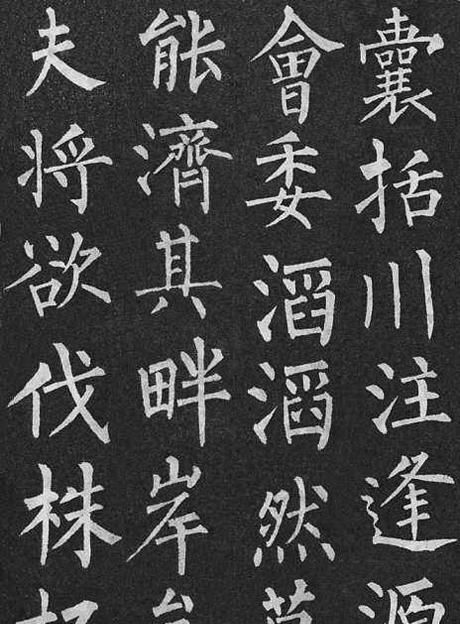 囊括川注逢源
會委滔滔然
能濟其畔岸
夫将欲伐株